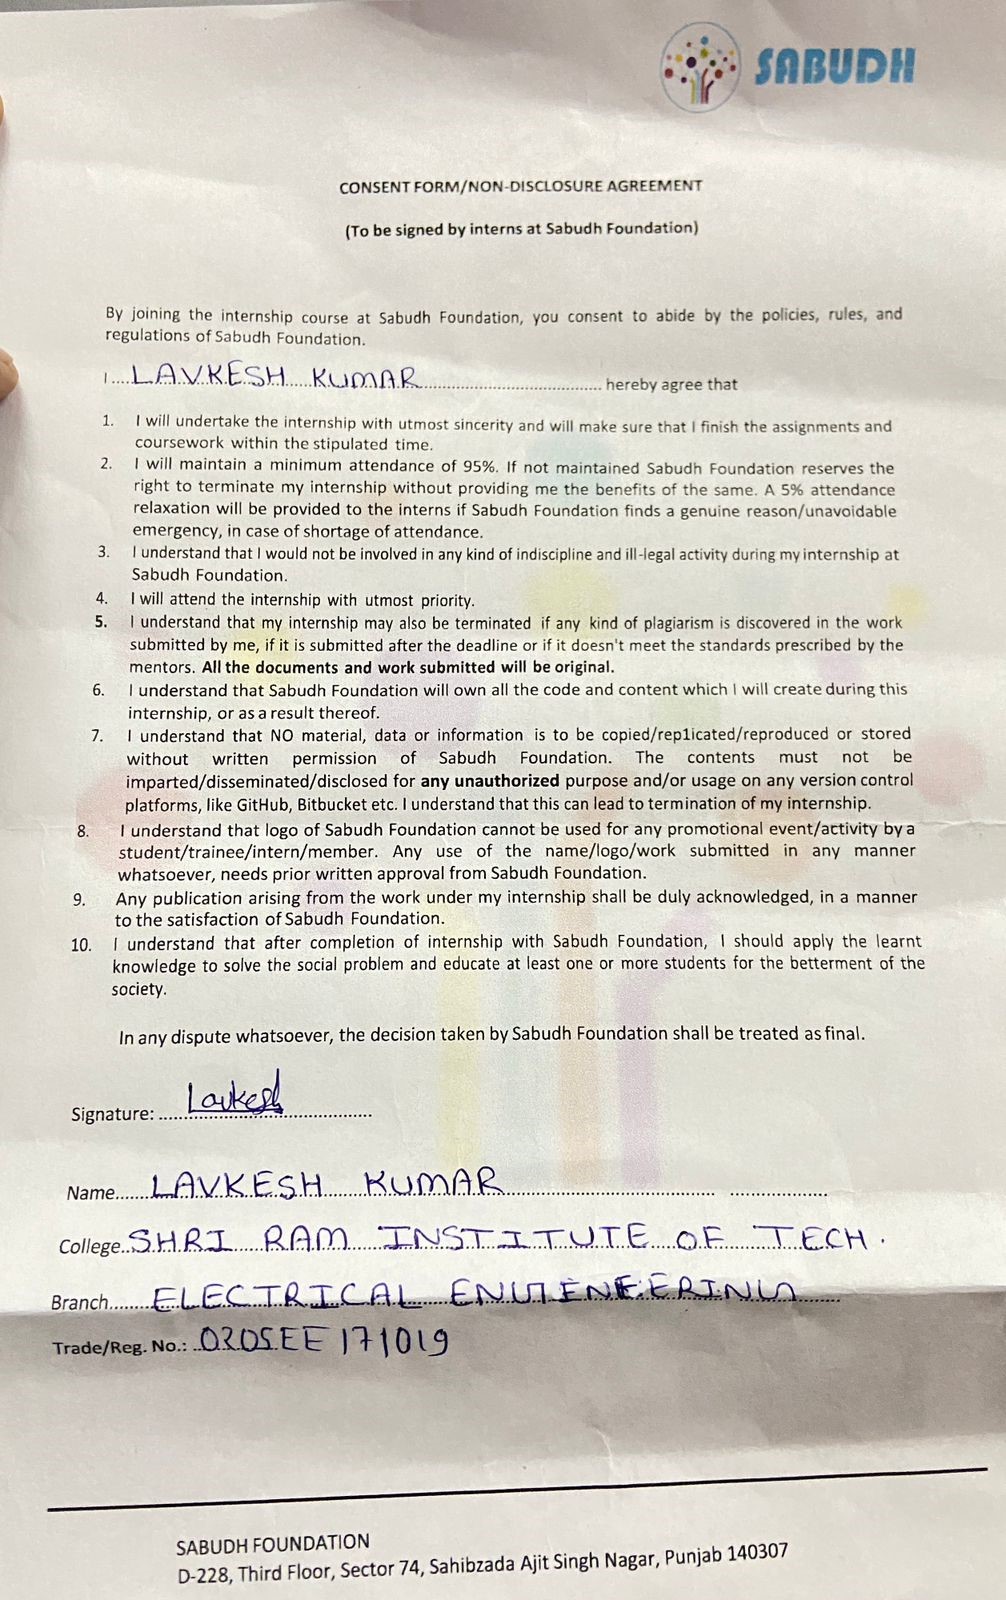 SABUDH
CONSENT FORM/NON-DISCLOSURE AGREEMENT
(To be signed by interns at Sabudh Foundation)
By joining the internship course at Sabudh Foundation, you consent to abide by the policies, rules, and
regulations of Sabudh Foundation.
I....LAVKESH KUMAR.......... hereby agree that
1. I will undertake the internship with utmost sincerity and will make sure that I finish the assignments and
coursework within the stipulated time.
2. I will maintain a minimum attendance of 95%. If not maintained Sabudh Foundation reserves the
right to terminate my internship without providing me the benefits of the same. A 5% attendance
relaxation will be provided to the interns if Sabudh Foundation finds a genuine reason/unavoidable
emergency, in case of shortage of attendance.
3. I understand that I would not be involved in any kind of indiscipline and ill-legal activity during my internship at
Sabudh Foundation.
4. I will attend the internship with utmost priority.
5. I understand that my internship may also be terminated if any kind of plagiarism is discovered in the work
submitted by me, if it is submitted after the deadline or if it doesn't meet the standards prescribed by the
mentors. All the documents and work submitted will be original.
6. I understand that Sabudh Foundation will own all the code and content which I will create during this
internship, or as a result thereof.
7. I understand that NO material, data or information is to be copied/rep1icated/reproduced or stored
without written permission of Sabudh Foundation. The contents must not be
imparted/disseminated/disclosed for any unauthorized purpose and/or usage on any version control
platforms, like GitHub, Bitbucket etc. I understand that this can lead to termination of my internship.
8. I understand that logo of Sabudh Foundation cannot be used for any promotional event/activity by a
student/trainee/intern/member. Any use of the name/logo/work submitted in any manner
whatsoever, needs prior written approval from Sabudh Foundation.
9. Any publication arising from the work under my internship shall be duly acknowledged, in a manner
to the satisfaction of Sabudh Foundation.
10. I understand that after completion of internship with Sabudh Foundation, I should apply the learnt
knowledge to solve the social problem and educate at least one or more students for the betterment of the
society.
In any dispute whatsoever, the decision taken by Sabudh Foundation shall be treated as final.
Signature: ....Lavkesh..........
Name......LAVKESH KUMAR..........
College..SHRI RAM INSTITUTE OF TECH.
Branch.......ELECTRICAL ENGINEERING......
Trade/Reg. No.: ..0205EE171019
SABUDH FOUNDATION
D-228, Third Floor, Sector 74, Sahibzada Ajit Singh Nagar, Punjab 140307